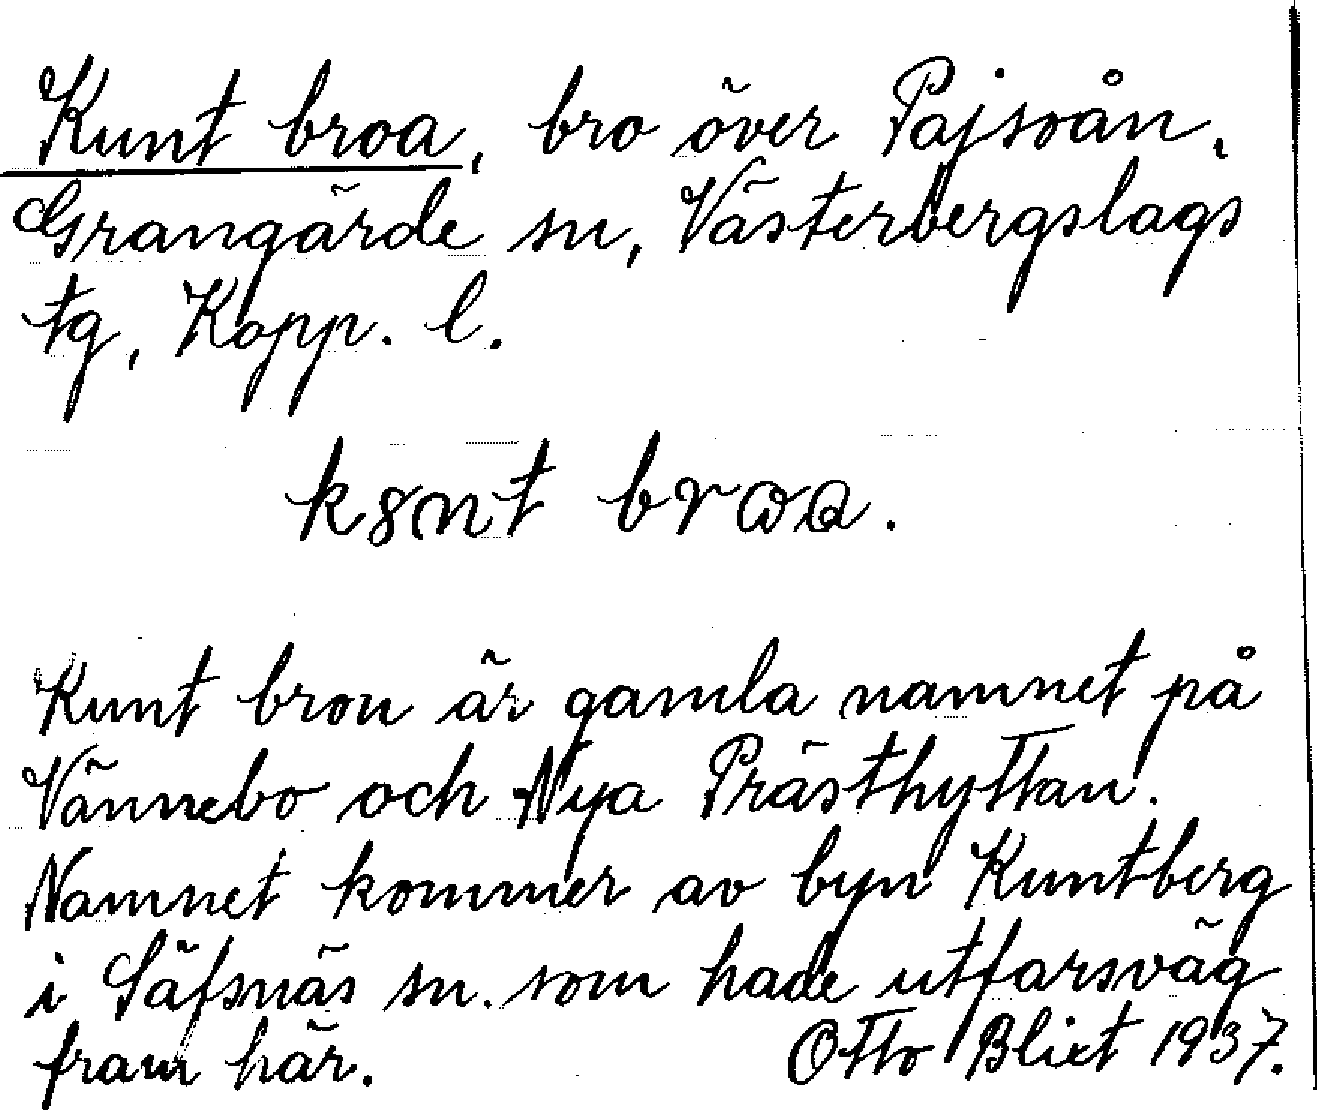 Kunt broa, bro över Pajsoån,
Grangärde sn, Västerbergslags
tg, Kopp. l.
k8nt broa.
Kunt bron är gamla namnet på
Vännebo och Nya Prästhyttan.
Namnet kommer av byn Kuntberg
i Säfsnäs sn. som hade utfarsväg
fram här. Otto Blixt 1937.